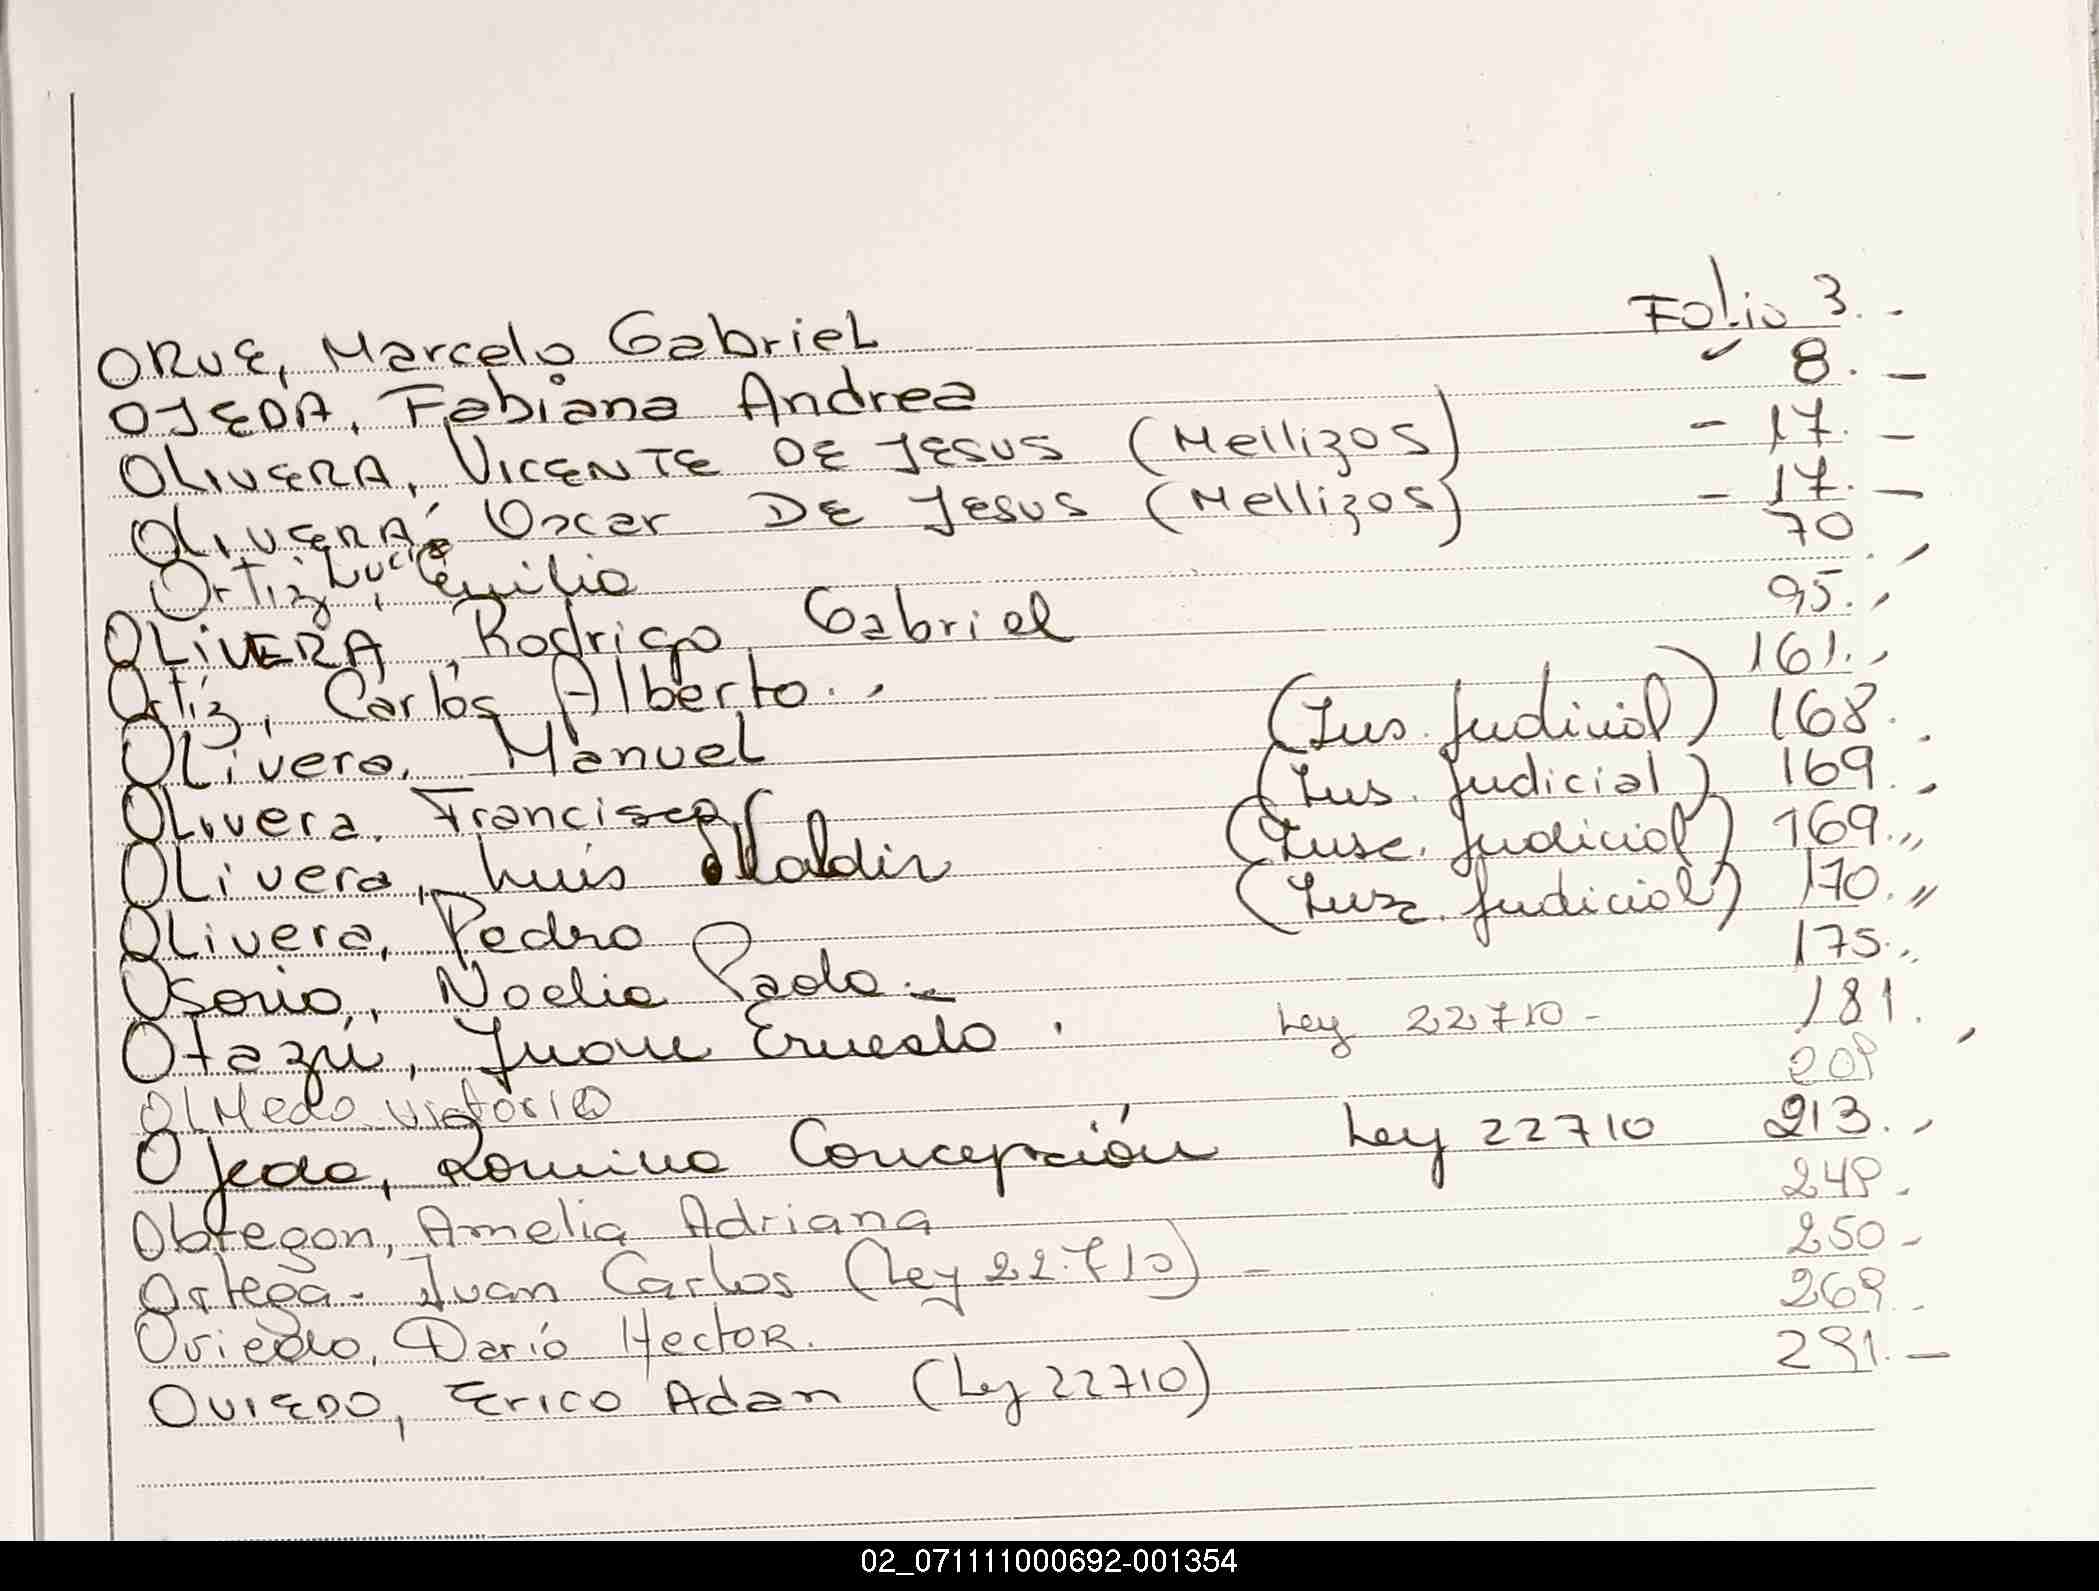 ORUE, Marcelo Gabriel Folio 3.-
OJEDA, Fabiana Andrea 8.-
OLIVERA, VICENTE DE JESUS (Mellizos) - 17.-
OLIVERA, Oscar DE JESUS (Mellizos) - 17.-
Ortiz, Lucia Emilia 70
OLIVERA, Rodrigo Gabriel 95.-
Ortiz, Carlos Alberto.- 161.-
OLivera, Manuel (Ins. Judicial) 168.
OLivera, Francisca (Ins. Judicial) 169.
OLivera, Luis (Insc. Judicial) 169.,,
OLivera, Pedro (Insc. Judicial) 170.,,
Osorio, Noelia Paola.- 175.,,
Otazú, Juan Ernesto. Ley 22710- 181.
OLMedo victoria
Ojeda, Romina Concepción Ley 22710 213.-
Obregon, Amelia Adriana
Ortega- Juan Carlos (Ley 22.710) - 250-
Oviedo, Darío Hector.
OVIEDO, Erico Adan (Ley 22710) 291.-
02_071111000692-001354